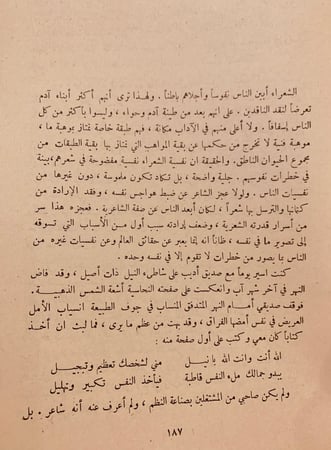 الشعراء أبين الناس نفوساً وأجلاهم باطناً . ولهذا ترى أنهم أكثر أبناء آدم
تعرضاً لنقد الناقدين . على أنهم بعد من طينة آدم وحواء ، وليسوا بأكثر من كل
الناس إسفافاً . ولا أعلى منهم في الآداب مكانة ، فهم طبقة خاصة تمتاز بموهبة ما ،
موهبة فنية لا تخرج من حكمها عن بقية المواهب التي تمتاز بها بقية الطبقات من
مجموع الحيوان الناطق . والحقيقة ان نفسية الشعراء نفسية مفضوحة في شعرهم ، بينة
في خطرات نفوسهم . جلية واضحة ، بل تكاد تكون ملموسة ، دون غيرها من
نفسيات الناس . ولولا عجز الشاعر عن ضبط هواجس نفسه ، وفقد الإرادة من
كتمانها والترسل بها شعراً ، لكان أبعد الناس عن صفة الشاعرية . فعجزه هذا سر
من أسرار قدرته الشعرية ، وضعف إرادته سبب أول من الأسباب التي تسوقه
إلى تصوير ما في نفسه ، ظاناً انه إنما يعبر عن حقائق العالم وعن نفسيات غيره من
الناس بما يصور من خطرات لا تقوم إلا في نفسه وحده .
كنت اسير يوماً مع صديق أديب على شاطىء النيل ذات أصيل . وقد فاض
النهر في آخر شهر آب وانعكست على صفحته النحاسية أشعة الشمس الذهبية .
فوقف صديقي أمام النهر المتدفق المنساب في جوف الطبيعة انسياب الأمل
العريض في نفس أمضها الفراق ، وقد بهت من عظم ما يرى ، فما لبث ان أخذ
كتاباً كان معي وكتب على أول صفحة منه :
الله أنت وانت الله يا نيل مني لشخصك تعظيم وتبجيل
يبدو جمالك ملء النفس قاطبة فيأخذ النفس تكبير وتهليل
ولم يكن صاحبي من المشتغلين بصناعة النظم ، ولم أعرف عنه أنه شاعر . بل
١٨٧